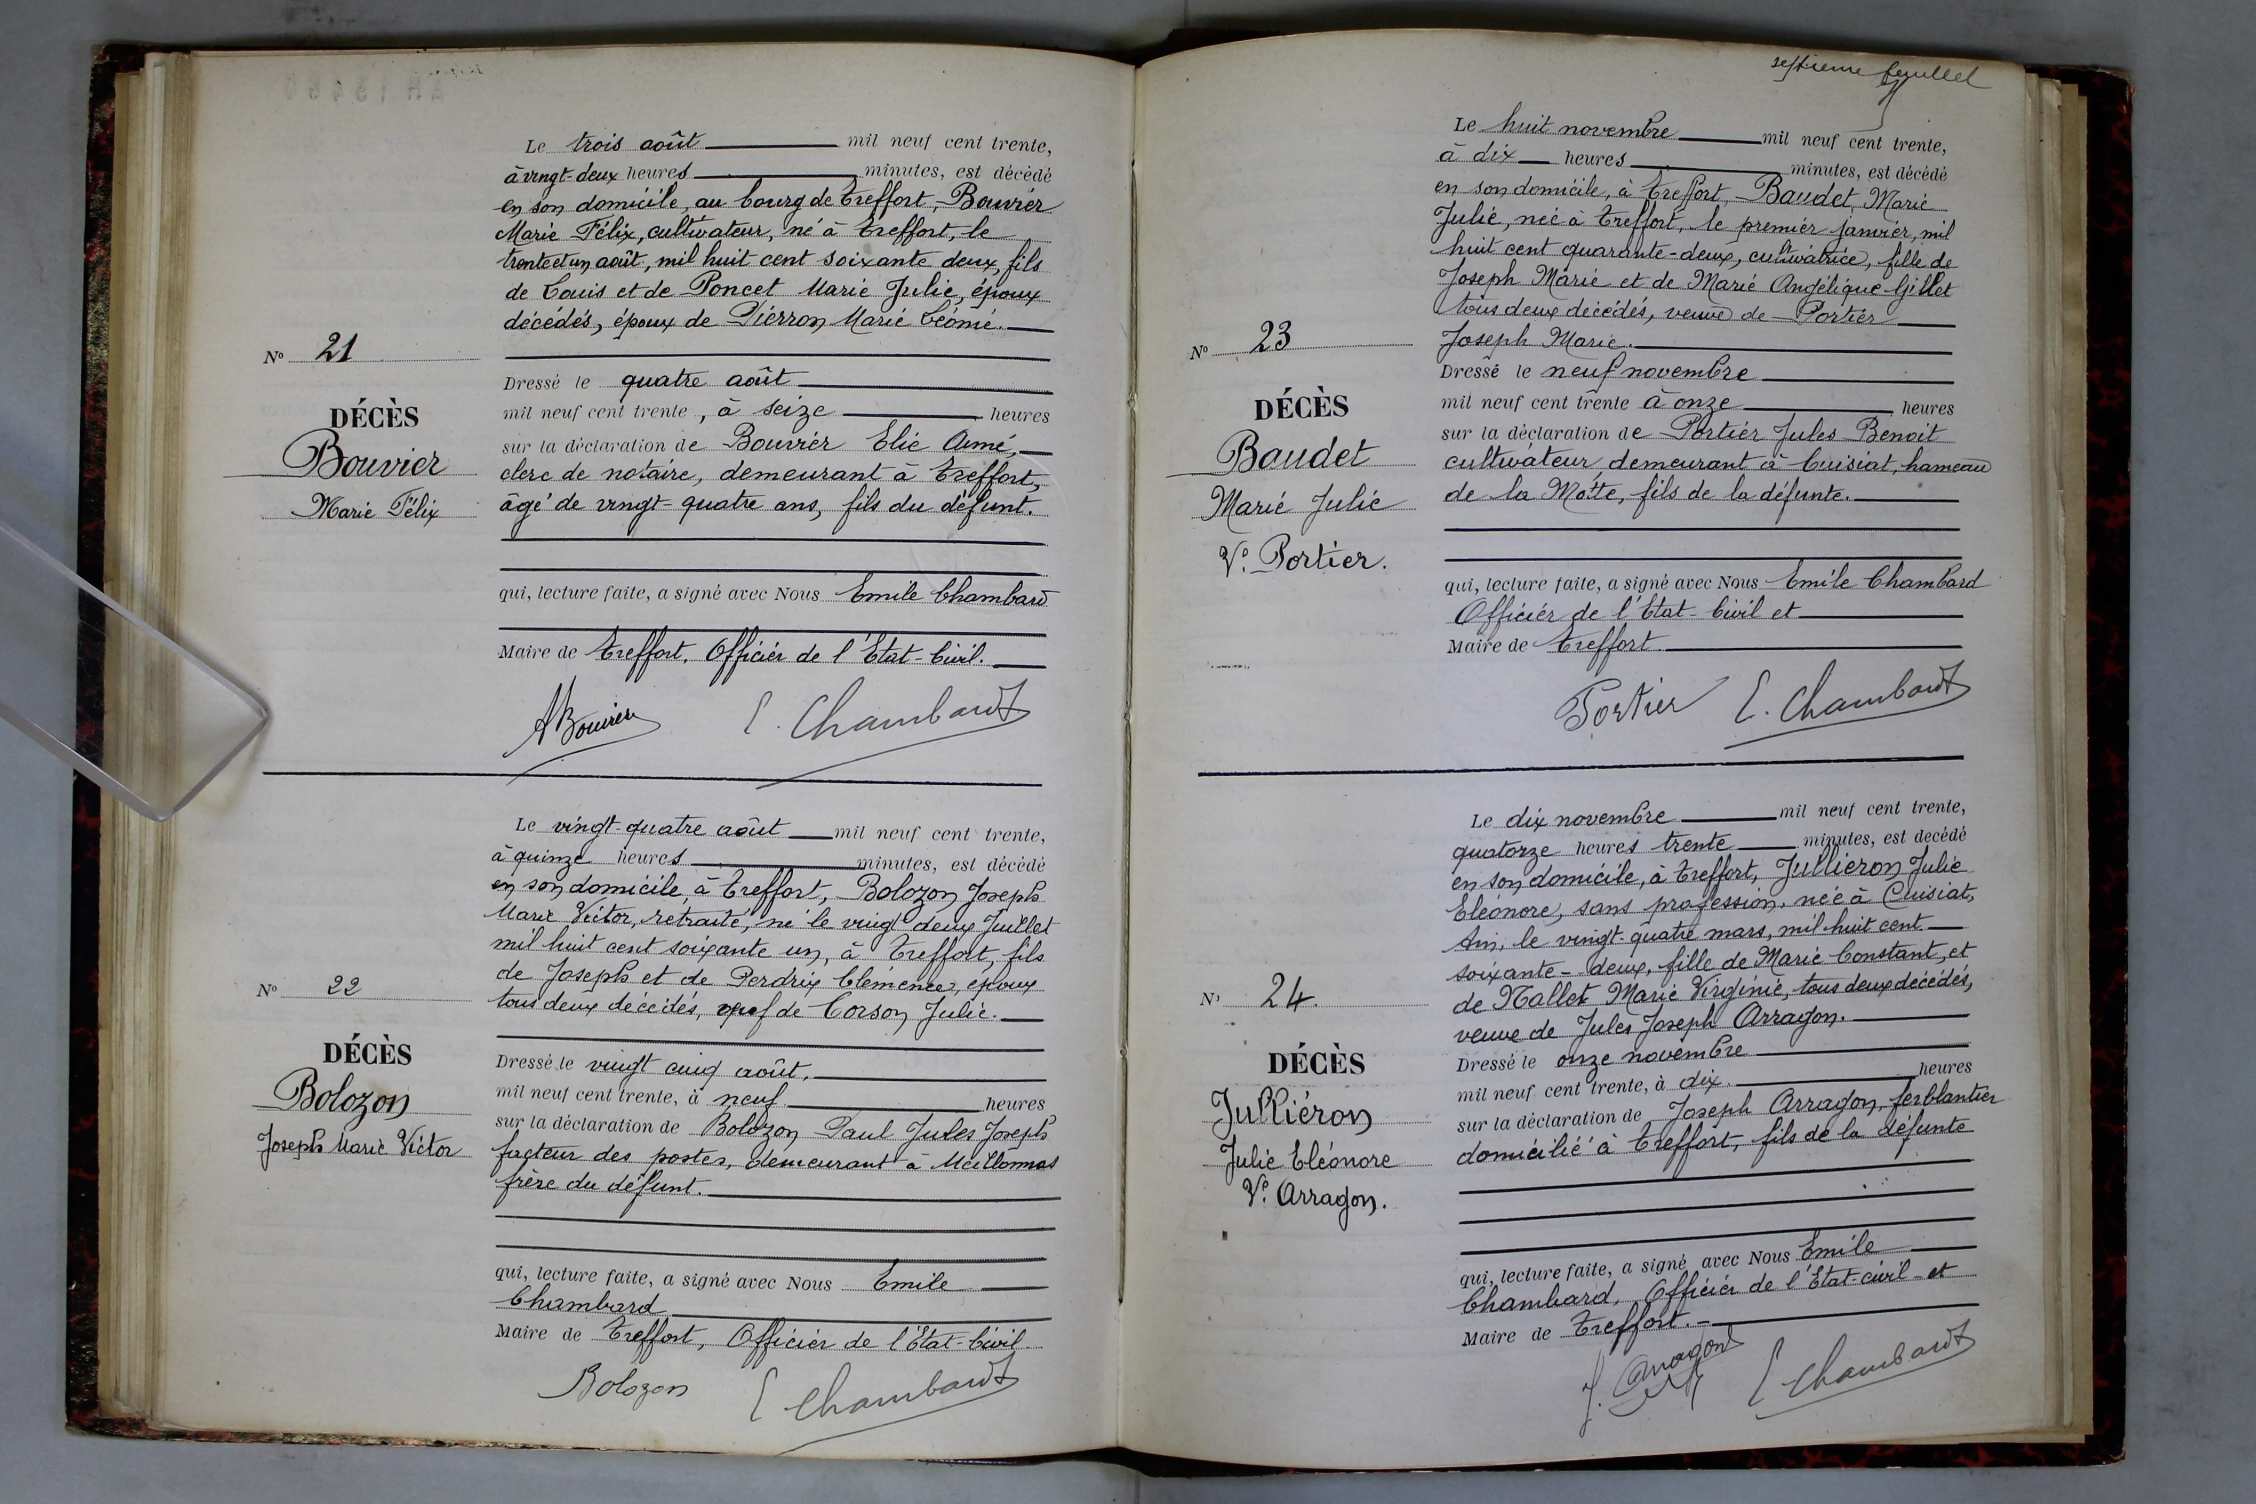 Le trois août mil neuf cent trente,
à vingt-deux heures minutes, est décédé
en son domicile, au bourg de Treffort, Bouvier
Marie Félix, cultivateur, né à Treffort, le
trente et un août, mil huit cent soixante deux, fils
de Louis et de Poncet Marie Julie, époux
décédés, époux de Pierron Marie Léonie.
N° 21
DÉCÈS
Bouvier
Marie Félix
Dressé le quatre août
mil neuf cent trente, à seize heures
sur la déclaration de Bouvier Elie Aimé,
clerc de notaire, demeurant à Treffort,
âgé de vingt-quatre ans, fils du défunt.
qui, lecture faite, a signé avec Nous Emile Chambard
Maire de Treffort, Officier de l'Etat-Civil.
ABouvier E. Chambard
Le vingt-quatre août mil neuf cent trente,
à quinze heures minutes, est décédé
en son domicile, à Treffort, Bolozon Joseph
Marie Victor, retraité, né le vingt deux Juillet
mil huit cent soixante un, à Treffort, fils
de Joseph et de Perdrix Clémence, époux
tous deux décédés, veuf de Corson Julie.
N° 22
DÉCÈS
Bolozon
Joseph Marie Victor
Dressé le vingt cinq août,
mil neuf cent trente, à neuf heures
sur la déclaration de Bolozon Paul Jules Joseph
facteur des postes, demeurant à Meillonnas
frère du défunt.
qui, lecture faite, a signé avec Nous Emile
Chambard
Maire de Treffort, Officier de l'Etat-Civil
Bolozon E Chambard
septième feuillet
Le huit novembre mil neuf cent trente,
à dix heures minutes, est décédé
en son domicile, à Treffort, Baudet, Marie
Julie, née à Treffort, le premier janvier, mil
huit cent quarante-deux, cultivatrice, fille de
Joseph Marie et de Marie Angélique Gillet
tous deux décédés, veuve de Portier
Joseph Marie.
N° 23
DÉCÈS
Baudet
Marie Julie
Ve. Portier.
Dressé le neuf novembre
mil neuf cent trente à onze heures
sur la déclaration de Portier Jules Benoit
cultivateur demeurant à Cuisiat, hameau
de la Motte, fils de la défunte.
qui, lecture faite, a signé avec Nous Emile Chambard
Officier de l'Etat-Civil et
Maire de Treffort
Portier E. Chambard
Le dix novembre mil neuf cent trente,
quatorze heures trente minutes, est décédé
en son domicile, à Treffort, Julliéron Julie
Eléonore, sans profession, née à Cuisiat,
Ain, le vingt-quatre mars, mil huit cent
soixante-deux, fille de Marie Constant, et
de Nallet Marie Virginie, tous deux décédés,
veuve de Jules Joseph Arragon.
N° 24.
DÉCÈS
Julliéron
Julie Eléonore
Ve. Arragon.
Dressé le onze novembre
mil neuf cent trente, à dix. heures
sur la déclaration de Joseph Arragon, ferblantier
domicilié à Treffort, fils de la défunte
qui, lecture faite, a signé avec Nous Emile
Chambard, Officier de l'Etat-civil et
Maire de Treffort.
J. Arragon E Chambard